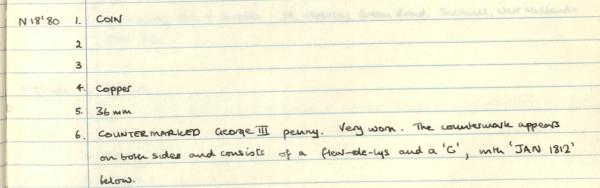 N18'80 1. COIN
2
3
4. Copper
5. 36mm
6. COUNTERMARKED George III penny. Very worn. The countermark appears
on both sides and consists of a fleur-de-lys and a 'G', with 'JAN 1812'
below.